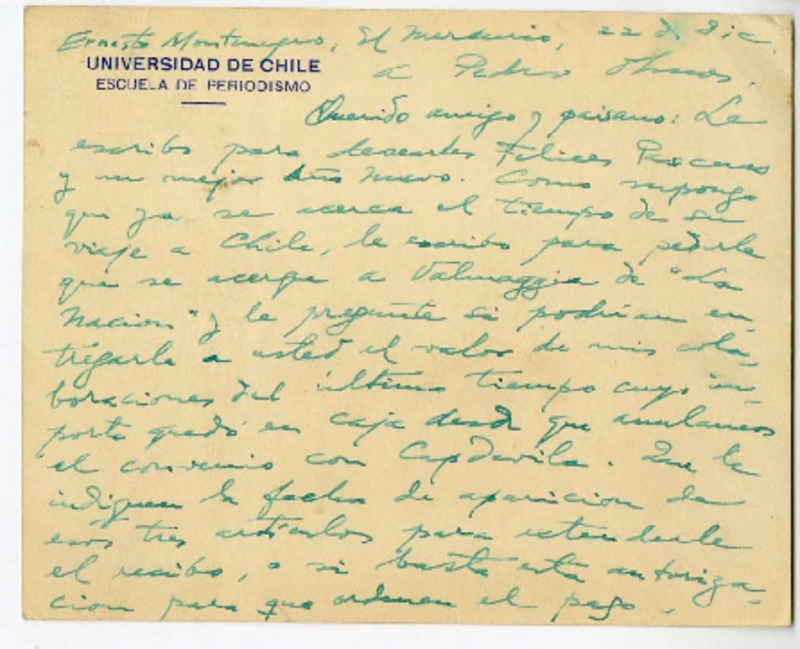 Ernesto Montenegro, El Mercurio, 22 d Dic.
UNIVERSIDAD DE CHILE
ESCUELA DE PERIODISMO
a Pedro Olmos.
Querido amigo y paisano: Le
escribo para desearles Felices Pascuas
y un mejor Año Nuevo. Como supongo
que ya se acerca el tiempo de su
viaje a Chile, le escribo para pedirle
que se acerque a Valmaggia de "La
Nacion" y le pregunte si podrían en-
tregarle a usted el valor de mis cola-
boraciones del último tiempo cuyo im-
porte quedó en caja desde que anulamos
el convenio con Capdevila. Que le
indiquen la fecha de aparicion de
esos tres artículos para extenderle
el recibo, o si basta esta autoriza-
cion para que ordenen el pago.